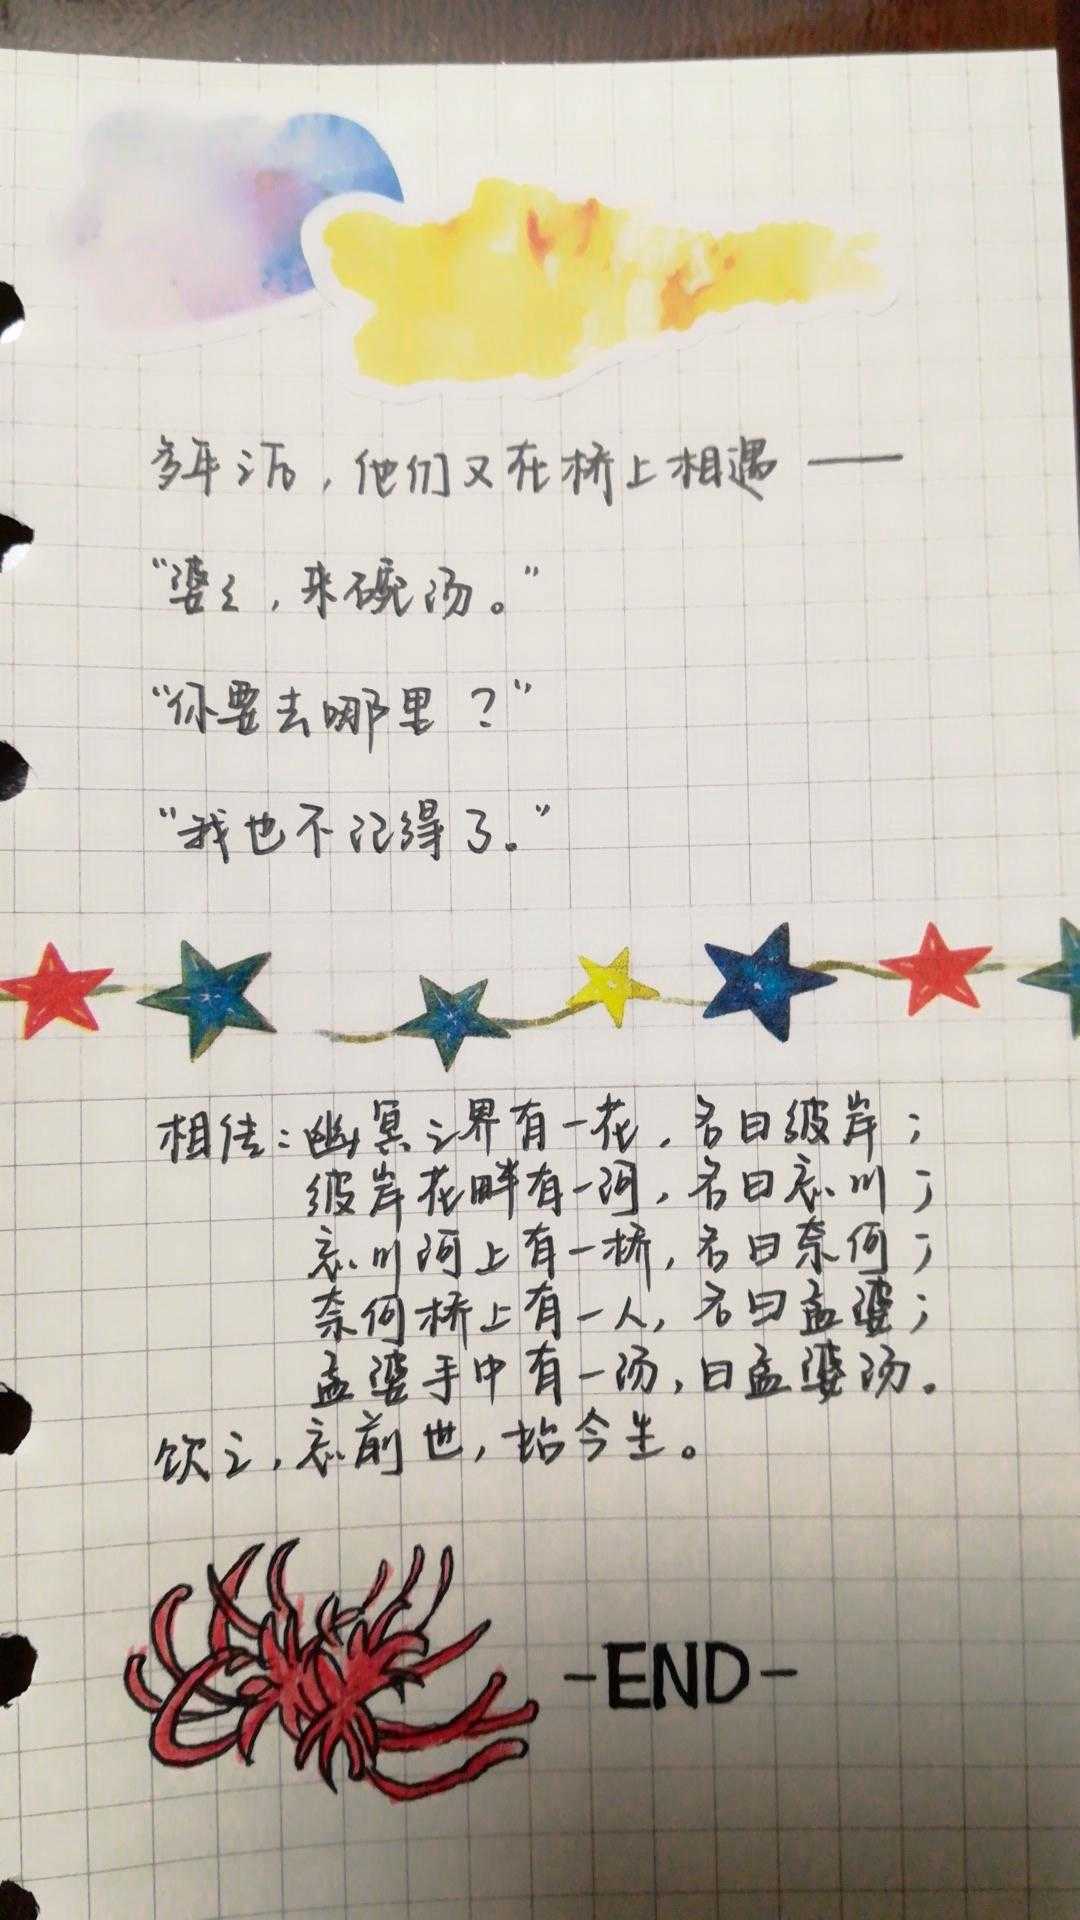 多年之后，他们又在桥上相遇——
“婆婆，来碗汤。”
“你要去哪里？”
“我也不记得了。”
相传：幽冥之界有一花，名曰彼岸；
彼岸花畔有一河，名曰忘川；
忘川河上有一桥，名曰奈何；
奈何桥上有一人，名曰孟婆；
孟婆手中有一汤，曰孟婆汤。
饮之，忘前世，始今生。
-END-